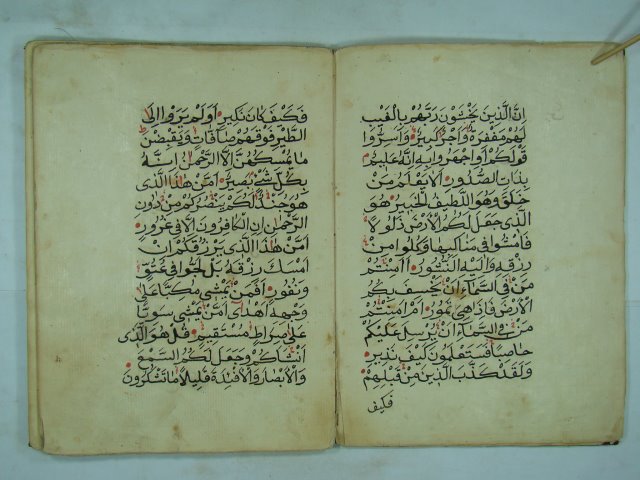 إن الذين يخشون ربهم بالغيب
لهم مغفرة وأجر كبير وأسروا
قولكم أو اجهروا به إنه عليم
بذات الصدور ألا يعلم من
خلق وهو اللطيف الخبير هو
الذي جعل لكم الأرض ذلولا
فامشوا في مناكبها وكلوا من
رزقه وإليه النشور أأمنتم
من في السماء أن يخسف بكم
الأرض فإذا هي تمور أم أمنتم
من في السماء أن يرسل عليكم
حاصبا فستعلمون كيف نذير
ولقد كذب الذين من قبلهم
فكيف
فكيف كان نكير أولم يروا إلى
الطير فوقهم صافات ويقبضن
ما يمسكهن إلا الرحمان إنه
بكل شيء بصير أمن هذا الذي
هو جند لكم ينصركم من دون
الرحمان إن الكافرون إلا في غرور
أمن هذا الذي يرزقكم إن
أمسك رزقه بل لجوا في عتو
ونفور أفمن يمشي مكبا على
وجهه أهدى أمن يمشي سويا
على صراط مستقيم قل هو الذي
أنشأكم وجعل لكم السمع
والأبصار والأفئدة قليلا ما تشكرون